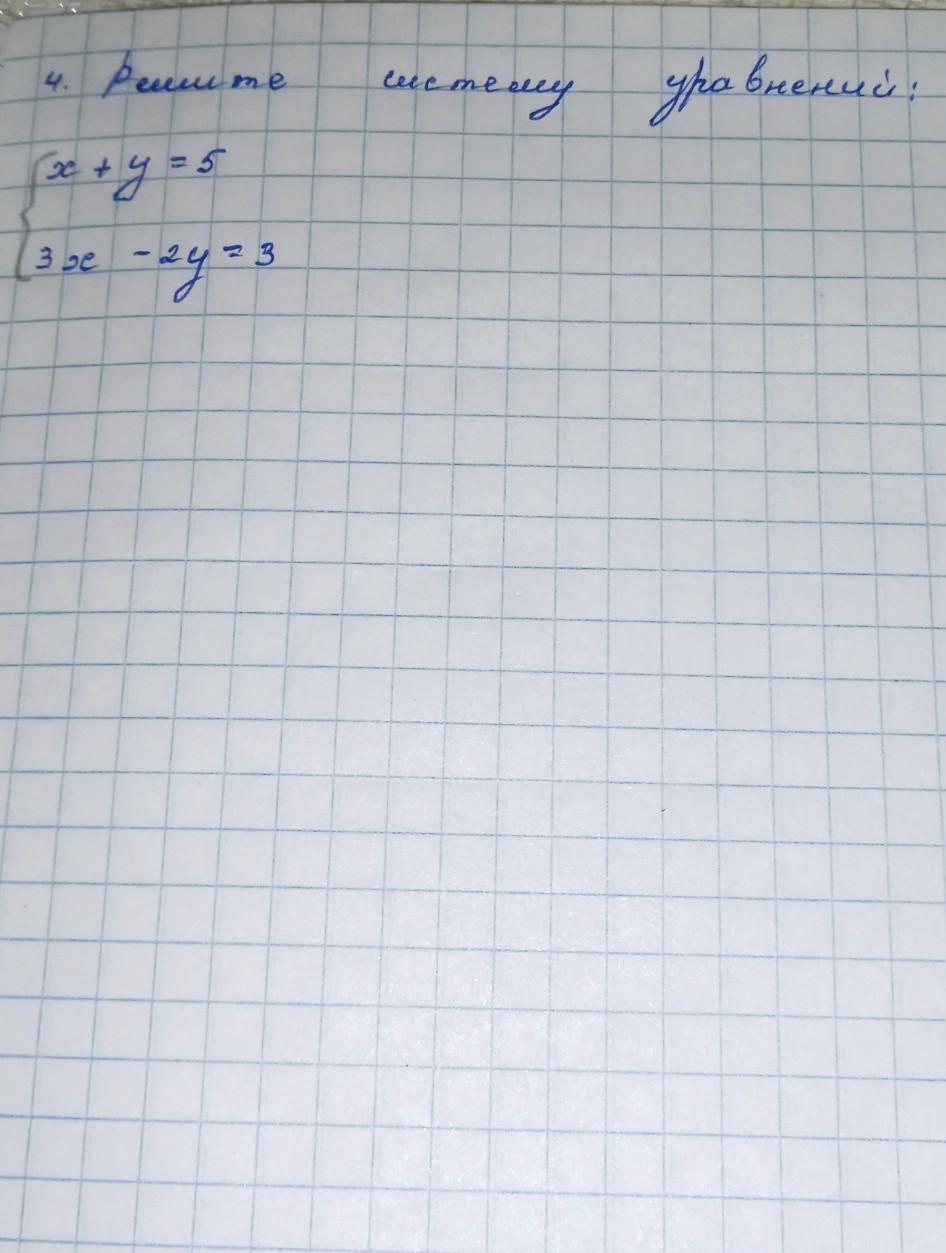 4. Решите систему уравнений:
x + y = 5
3x - 2y = 3